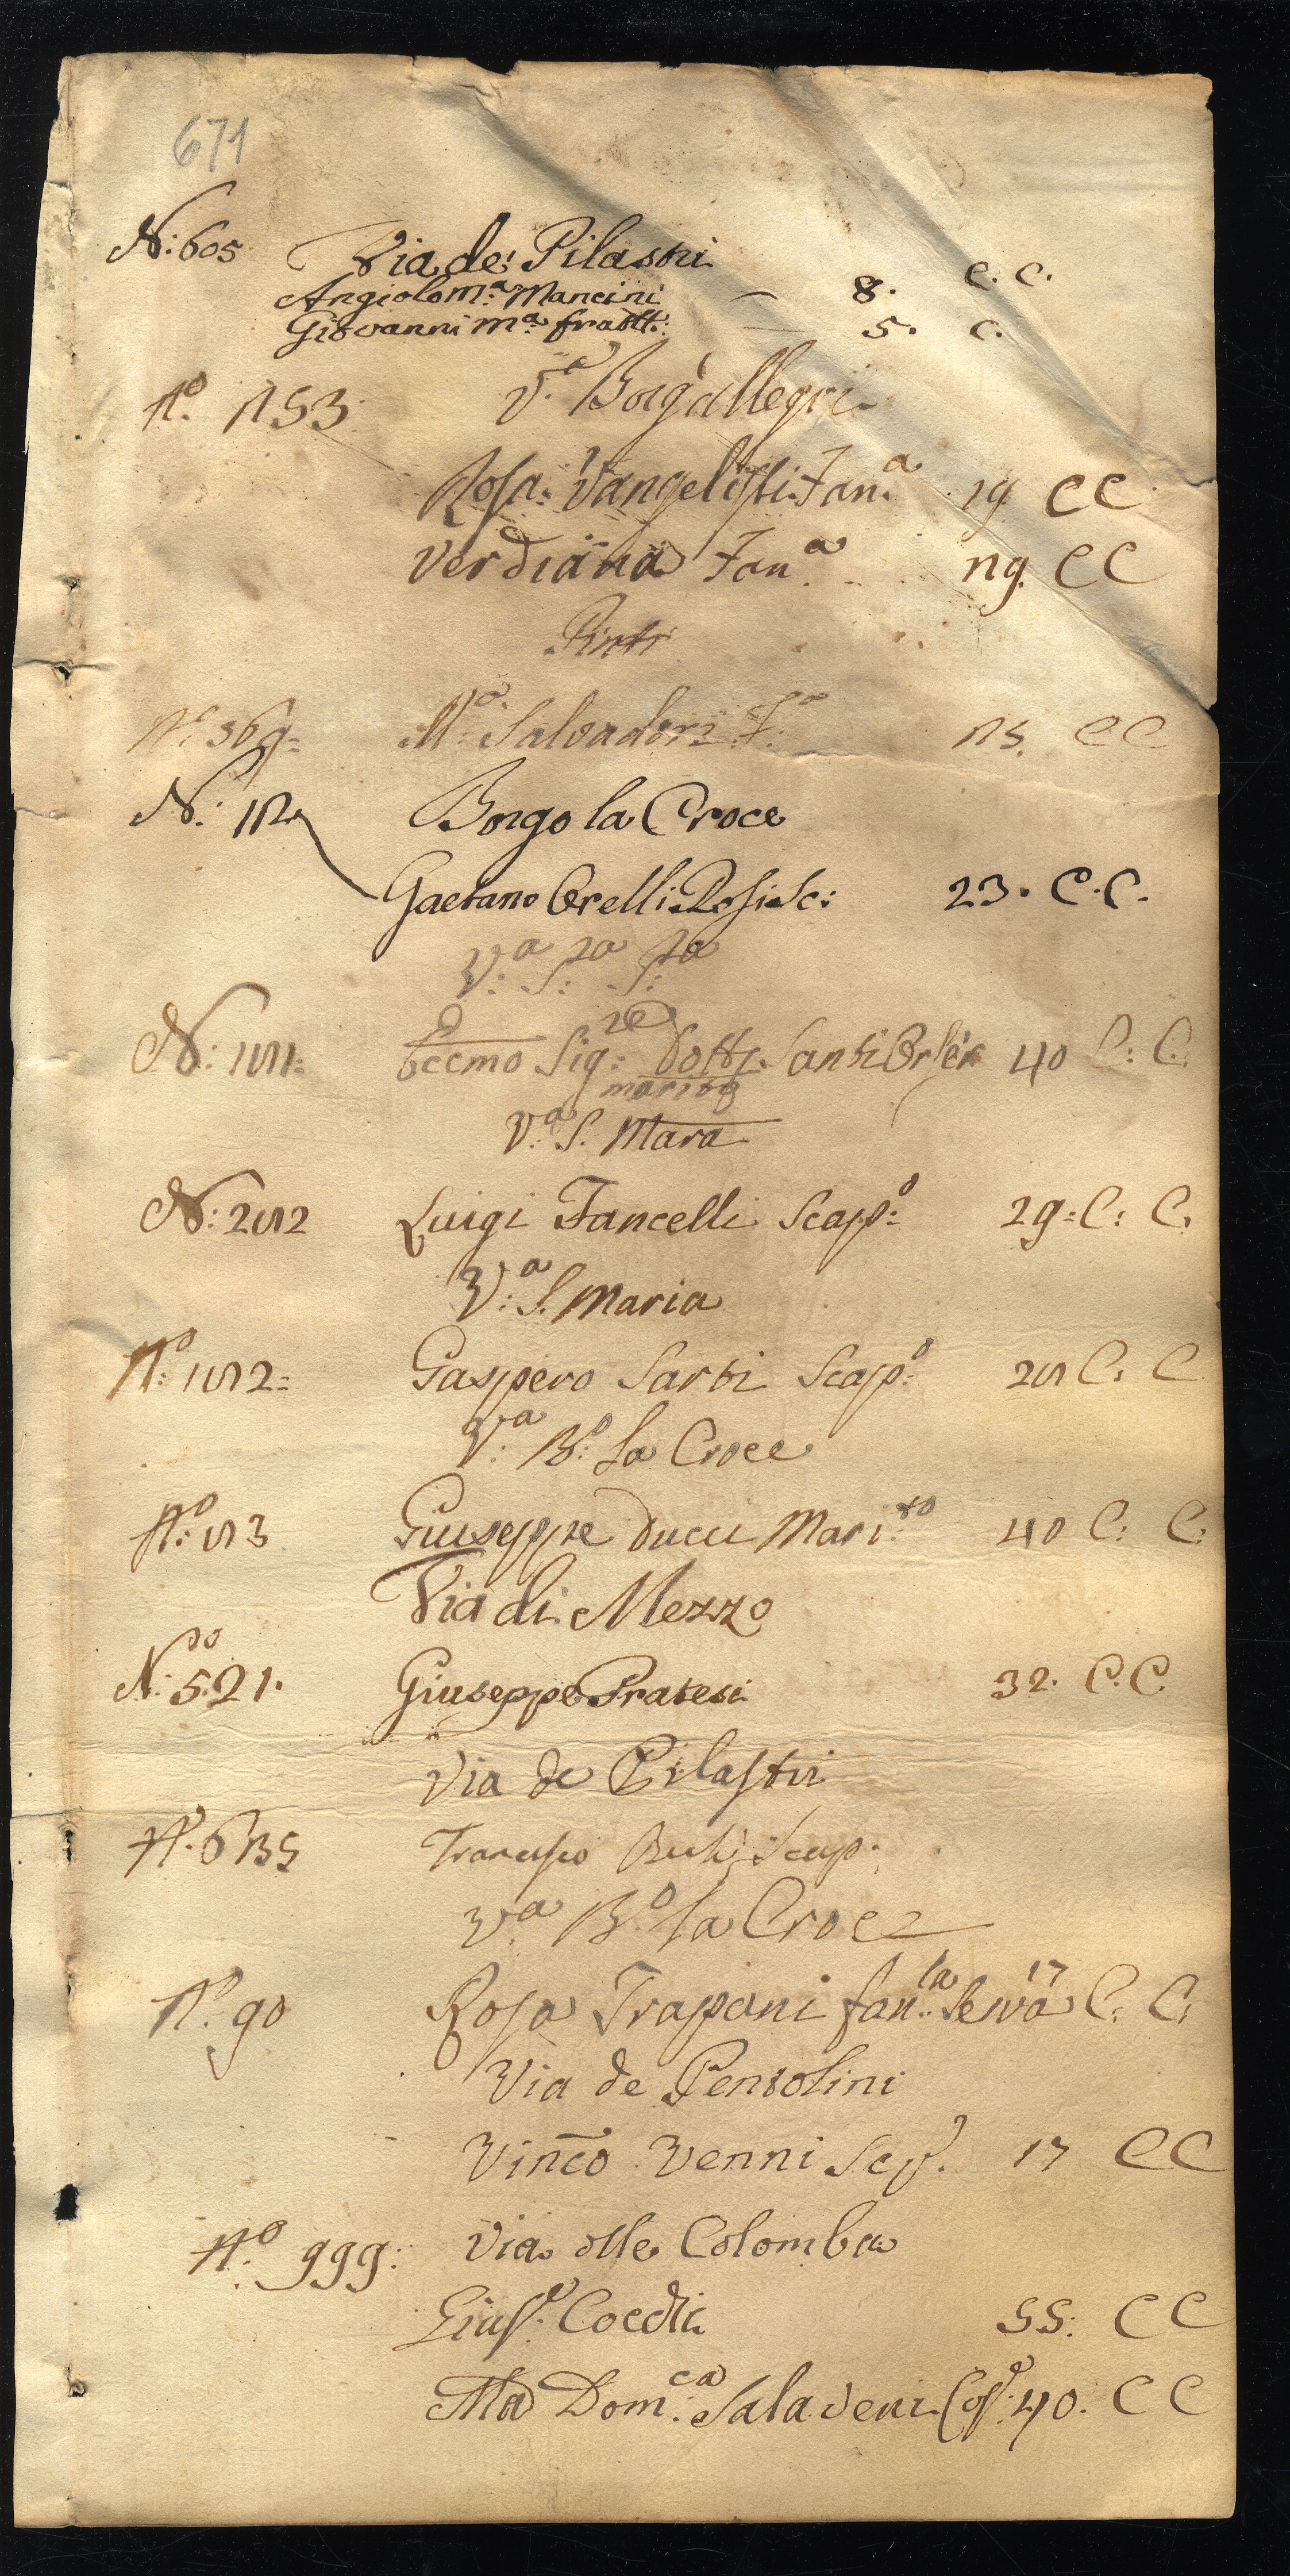 671
N: 605 Via de: Pilastri
Angiolo M.ª Mancini 8. C. C.
Giovanni M.ª fratt: 5. C.
N.º 153 V.ª Borg'allegri
Rosa: Vangelisti Fan.ª 19 CC
Verdiana Fan.ª 19. CC
Pinti
N.º 569= M.ª Salvadori F.ª 15. CC
N: Borgo la Croce
Gaetano Orelli 23. C.C.
V.ª
N: Eccmo Sig.re Dott. Santi 40 C: C.
marito
V.ª S. Mara
N: 2 2 Luigi Fancelli Scap.º 29= C: C.
V.ª S. Maria
N.º Gaspero Sarti Scap.º C: C
V.ª B.º La Croce
N.º Giuseppe Ducci Mari.to 40 C: C:
Via di Mezzo
N.º 521. Giuseppe Pratesi 32. C.C.
Via de Pilastri
N.º 6135 Francesco Scap.
V.ª B.º la Croce
N.º 90 Rosa Trapani fan.la Serva 17 C: C:
Via de Pentolini
Vinco Venni Scp. 17 CC
N.º 999: Via dlle Colomba
Gius.e Cocchi 55: CC
Ma Dom.ca Saladeni 40. CC